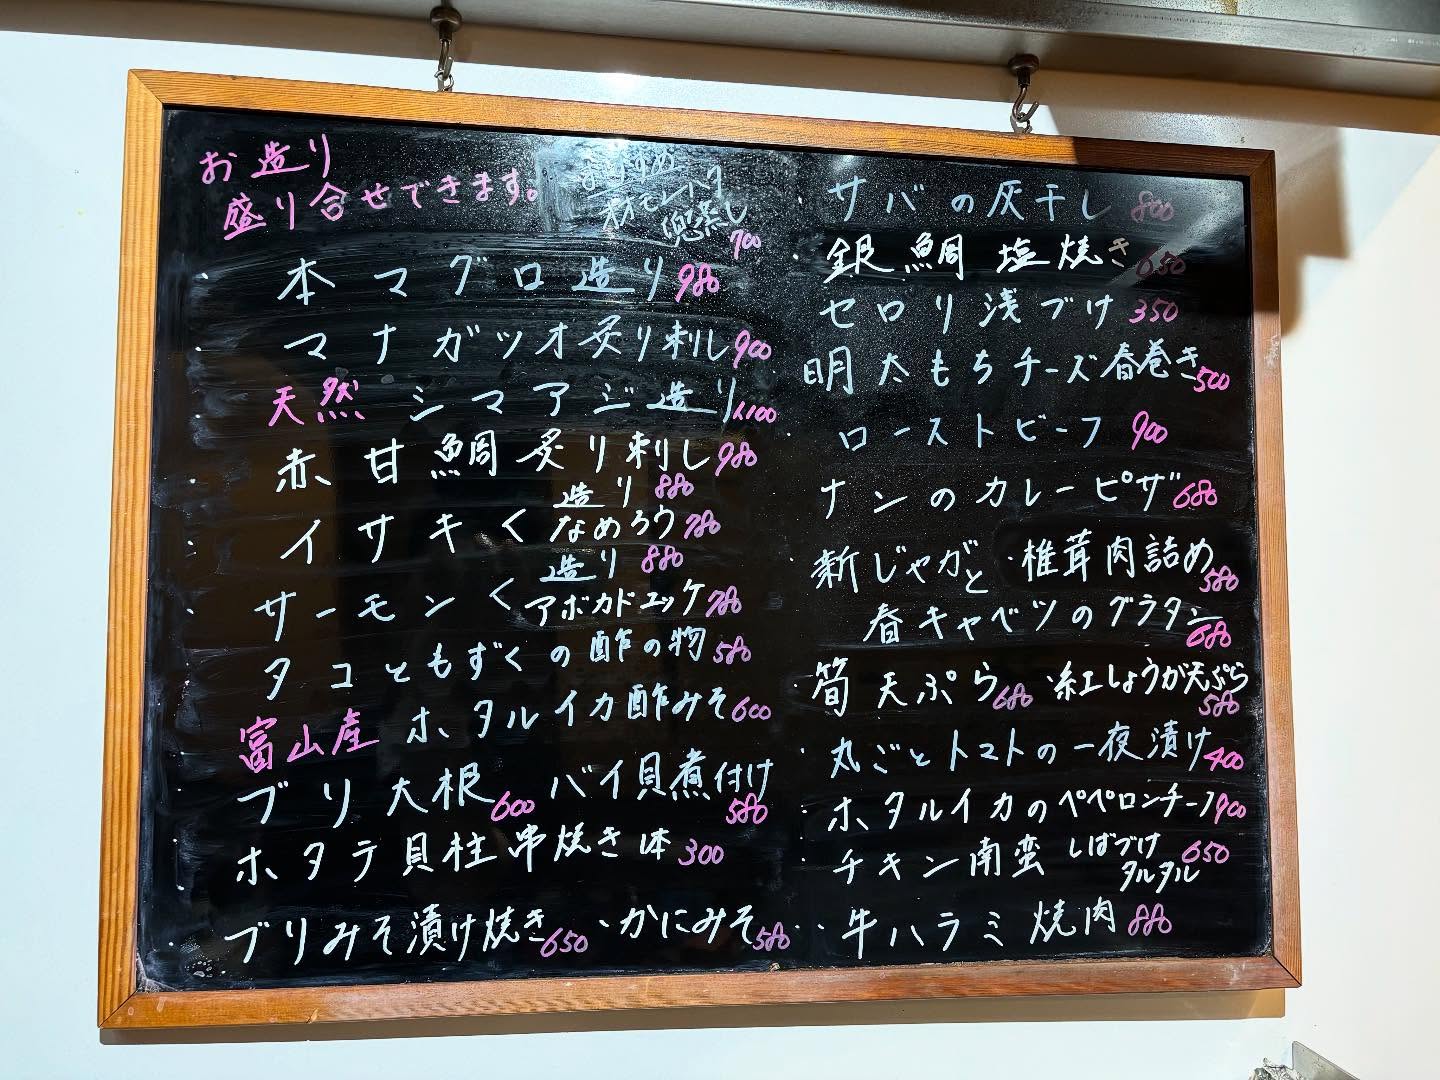 お造り
盛り合せできます。
おすすめ
オオモンハタ
兜蒸し
700
本マグロ造り 980
マナガツオ炙り刺し 900
天然 シマアジ造り 1,100
赤甘鯛炙り刺し 980
イサキく 造り 880
なめろう 780
サーモンく 造り 880
アボカドユッケ 780
タコともずくの酢の物 580
富山産 ホタルイカ酢みそ 600
ブリ大根 600 バイ貝煮付け 580
ホタテ貝柱串焼き 1本 300
ブリみそ漬け焼き 650 ・かにみそ 580
サバの灰干し 800
・銀鯛塩焼き 650
セロリ浅づけ 350
明太もちチーズ春巻き 500
・ローストビーフ 900
ナンのカレーピザ 680
・新じゃがと・椎茸肉詰め 580
春キャベツのグラタン 680
・筍天ぷら 680 ・紅しょうが天ぷら 580
・丸ごとトマトの一夜漬け 400
・ホタルイカのペペロンチーノ 900
・チキン南蛮 しばづけ 650
タルタル
・牛ハラミ焼肉 880